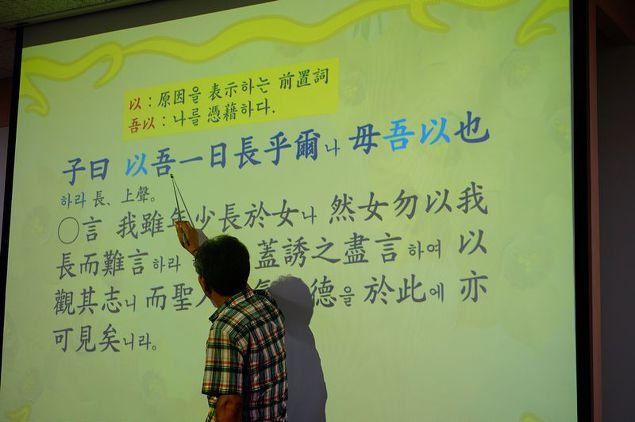 以 : 原因을 表示하는 前置詞
吾以 : 나를 憑藉하다.
子曰 以吾一日長乎爾나 毋吾以也
하라 長、上聲。
○言 我雖年少長於女나 然女勿以我
長而難言하라 蓋誘之盡言하여 以
觀其志니 而聖 德을 於此에 亦
可見矣니라。